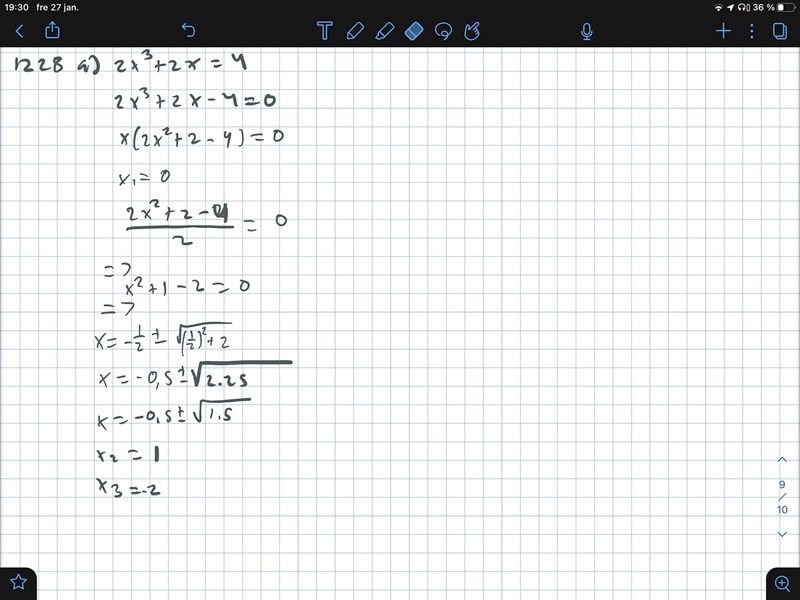 19:30 fre 27 jan. 36 %
1228 a) 2x³+2x=4
2x³+2x-4=0
x(2x²+2-4)=0
x₁=0
2x²+2-4
2
= 0
=>
x²+1-2=0
=>
x=-1/2 ± √(1/2)²+2
x=-0,5±√2.25
x=-0,5±√1.5
x₂=1
x₃=-2
9
/
10